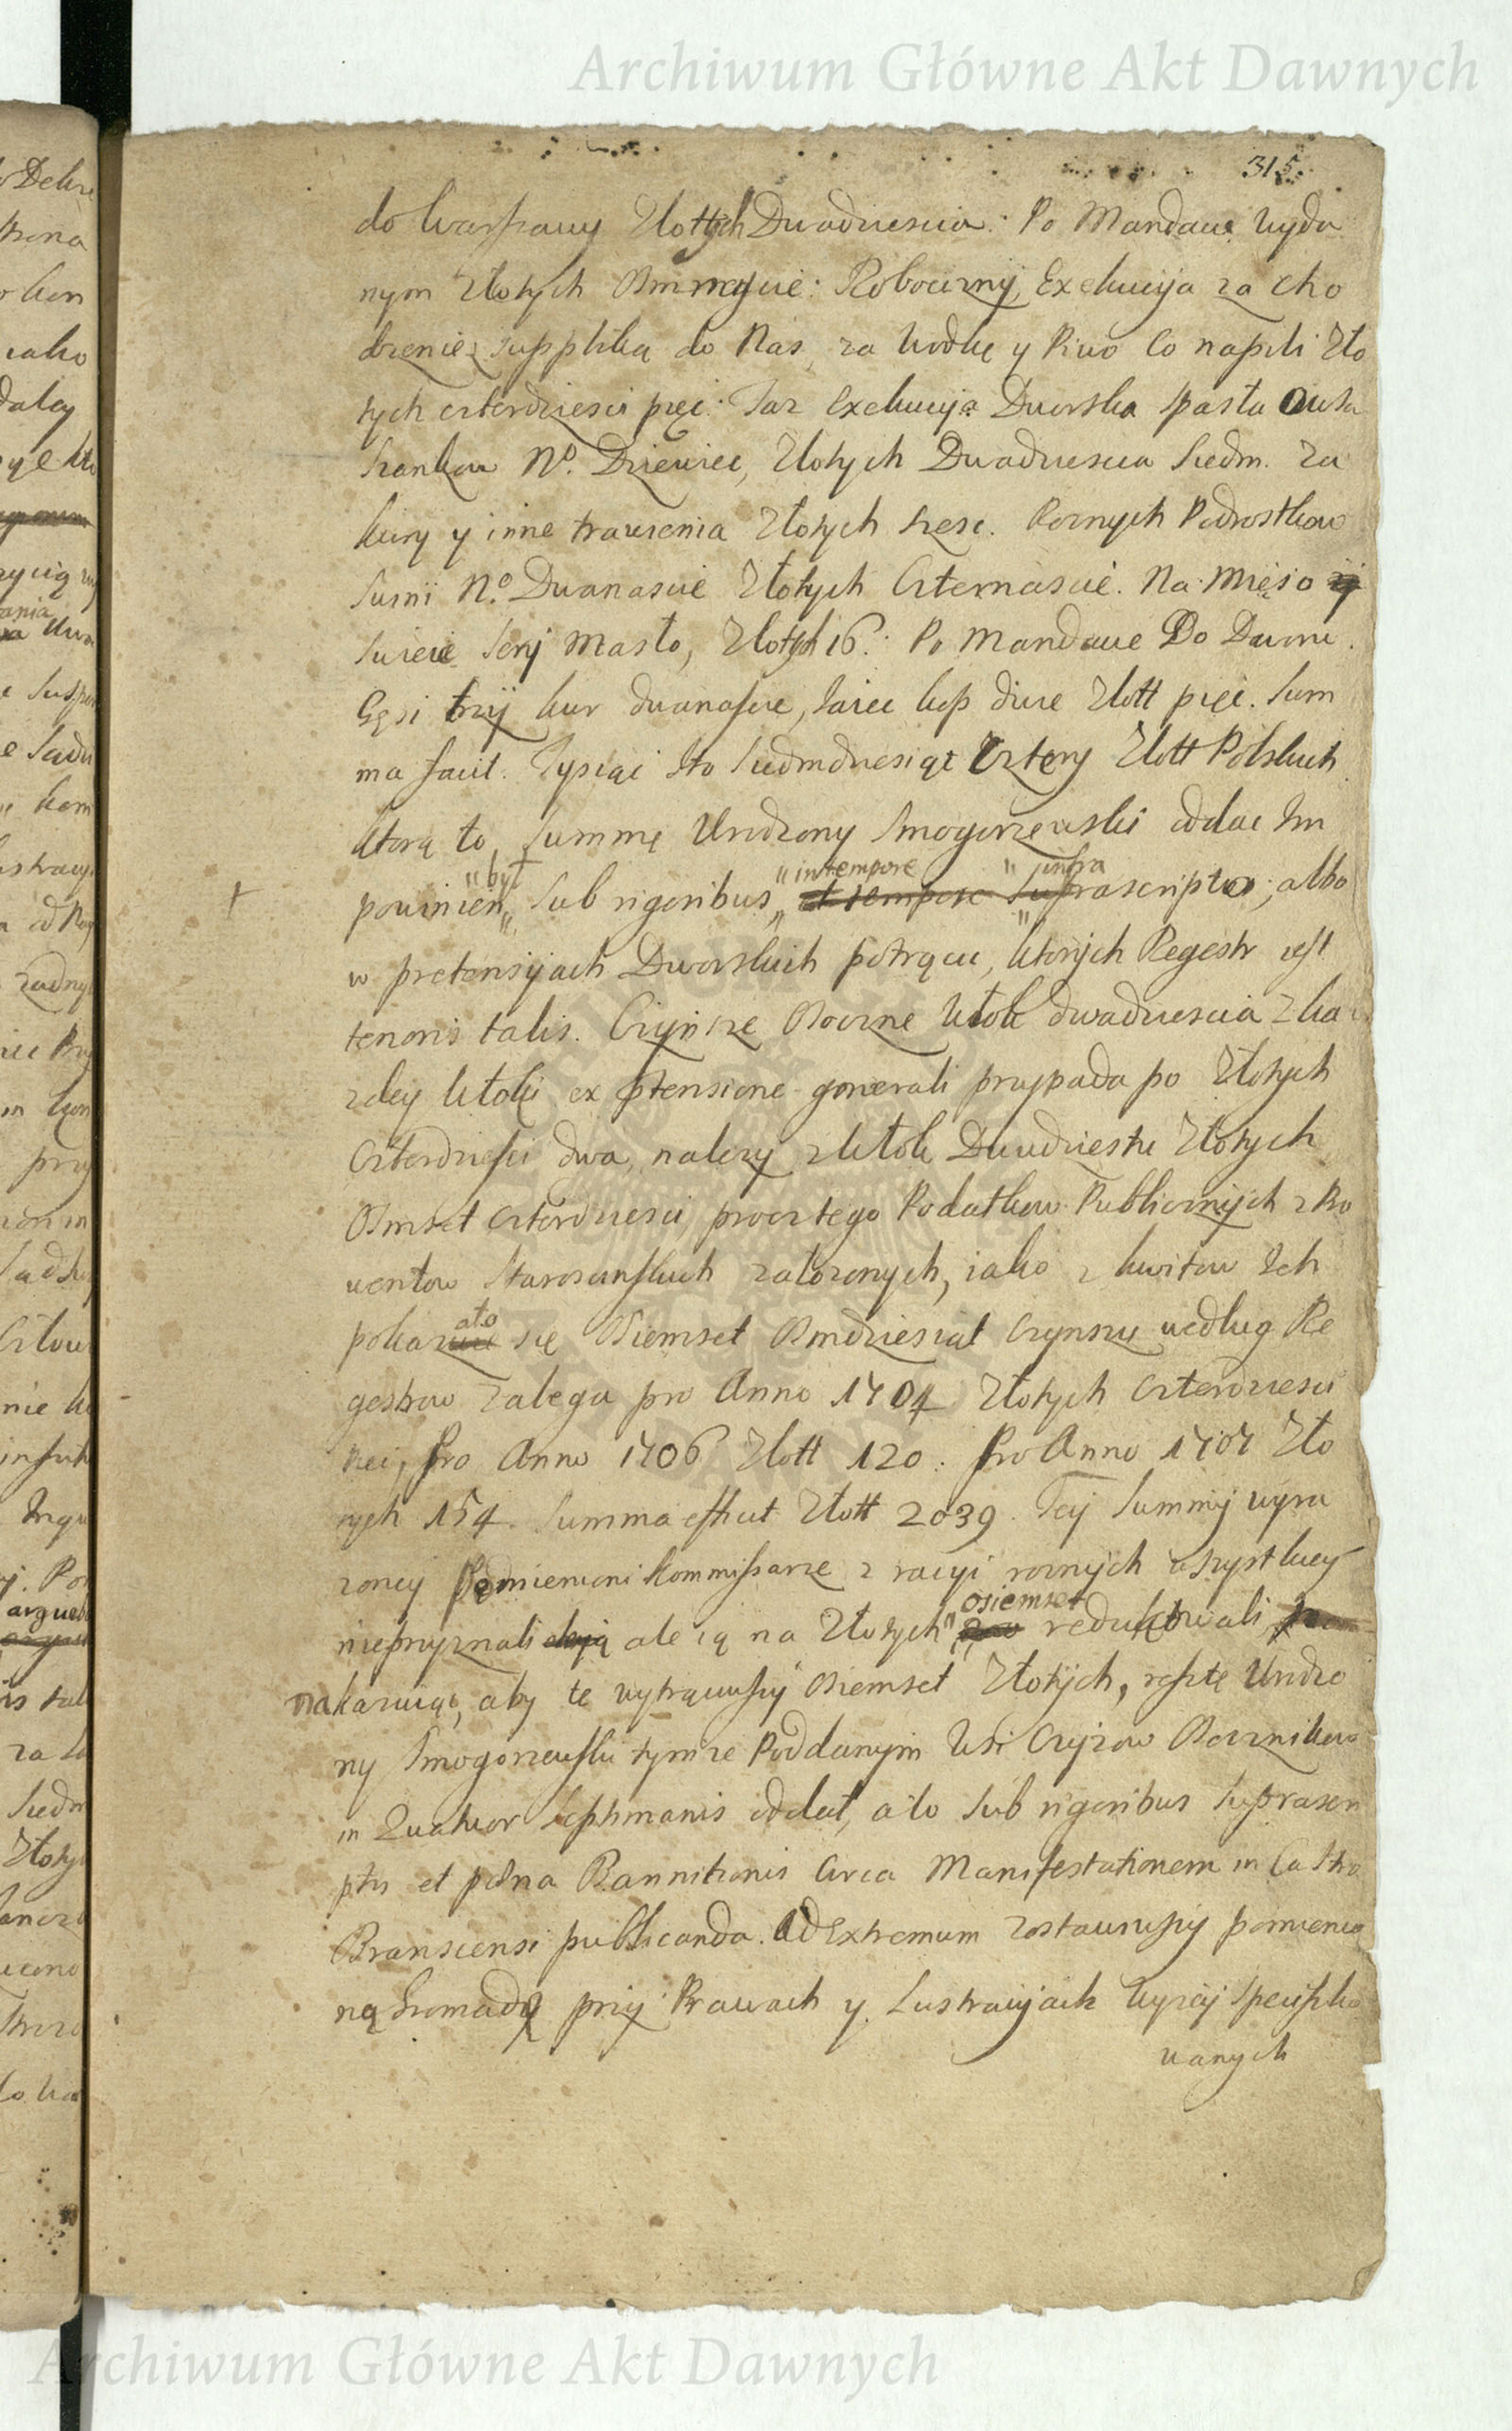 Archiwum Główne Akt Dawnych
315
do Warszawy Złottych Dwadziescia. Po Mandacie wyda
nym Złotych Ośmnascie. Roboczny Exekucyja za cho
dzenie z suppliką do Nas, za Wodkę y Piwo Co napili Zło
tych czterdziesci pięć. Taz Exekucyja Dworska spasła Owsa
Szankow N° Dziewiec, Złotych Dwadziescia Siedm. Za
kury y inne trawienia Złotych szesc. Roznych Podrostkow
Swini N° Dwanascie Złotych Czternascie. Na Mięso
Swieże Sery Masło, Złotych 16. Po Mandacie Do Dworu
Gęsi trzy kur dwanascie, Jaiec kop dwie Złott pięć. Sum
ma facit. Tysiąc Sto Siedmdziesiąt Cztery Złott Polskich
ktorą to Summę Urodzony Smogorzewski oddac Im
"być "intempore "infra
powinien, sub rigoribus et tempore suprascriptis; albo
w pretensyjach Dworskich potrącic, ktorych Regestr est
tenoris talis. Czynsze Roczne Włok dwadziescia z ka
zdey Włoki ex ptensione generali przypada po Złotych
Czterdziesci dwa, nalezy z Włok Dwudziestu Złotych
Osmset czterdziesci, procz tego Podatkow Publicznych z Pro
wentow Starosćinskich załozonych, iako z kwitow Ich
ało
pokazuie się Osiemset Osmdziesiąt Czynszu według Re
gestrow zalega pro Anno 1704 Złotych Czterdziesci
Pro Anno 1706 Złott 120. Pro Anno 1707 Zło
tych 154. Summa efficit Złott 2039. Tey Summy wyra
zoney Pomienieni Kommissarze z racyi roznych wszystkiey
osiemset
nieprzyznali ale ią na Złotych redukowali,
nakazuiąc, aby te wytrąciwszy Osiemset Złotych, resztę Urodzo
ny Smogorzewski tymze Poddanym Wsi Czyzow Bocznikow
in Quatuor Septimanis oddał, a to sub rigoribus suprascri
ptis et pœna Bannitionis Circa Manifestationem in Castro
Branscensi publicanda. Ad Extremum zostawuiący pomienio
ną Gromadę przy Prawach y Lustracyjach Wyzey specyfiko
wanych
Archiwum Główne Akt Dawnych